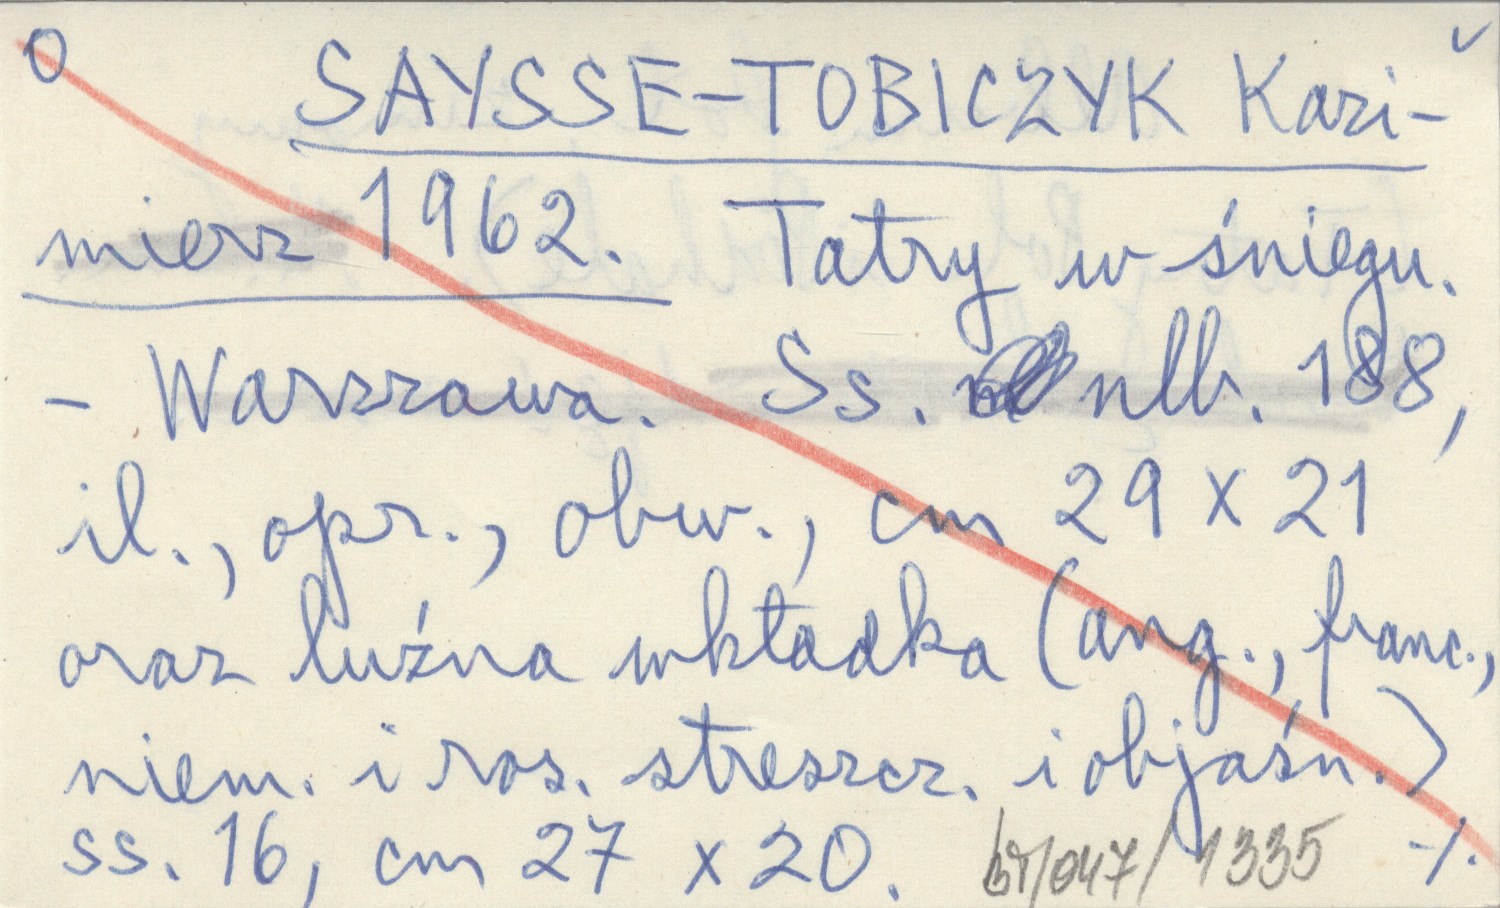 O SAYSSE-TOBICZYK Kazi-
mierz 1962. Tatry w śniegu.
- Warszawa. Ss. nlb. 188,
il., opr., obw., cm 29 x 21
oraz luźna wkładka (ang., franc.,
niem. i ros. streszcz. i objaśn.)
ss. 16, cm 27 x 20. br/047/1335 -/.